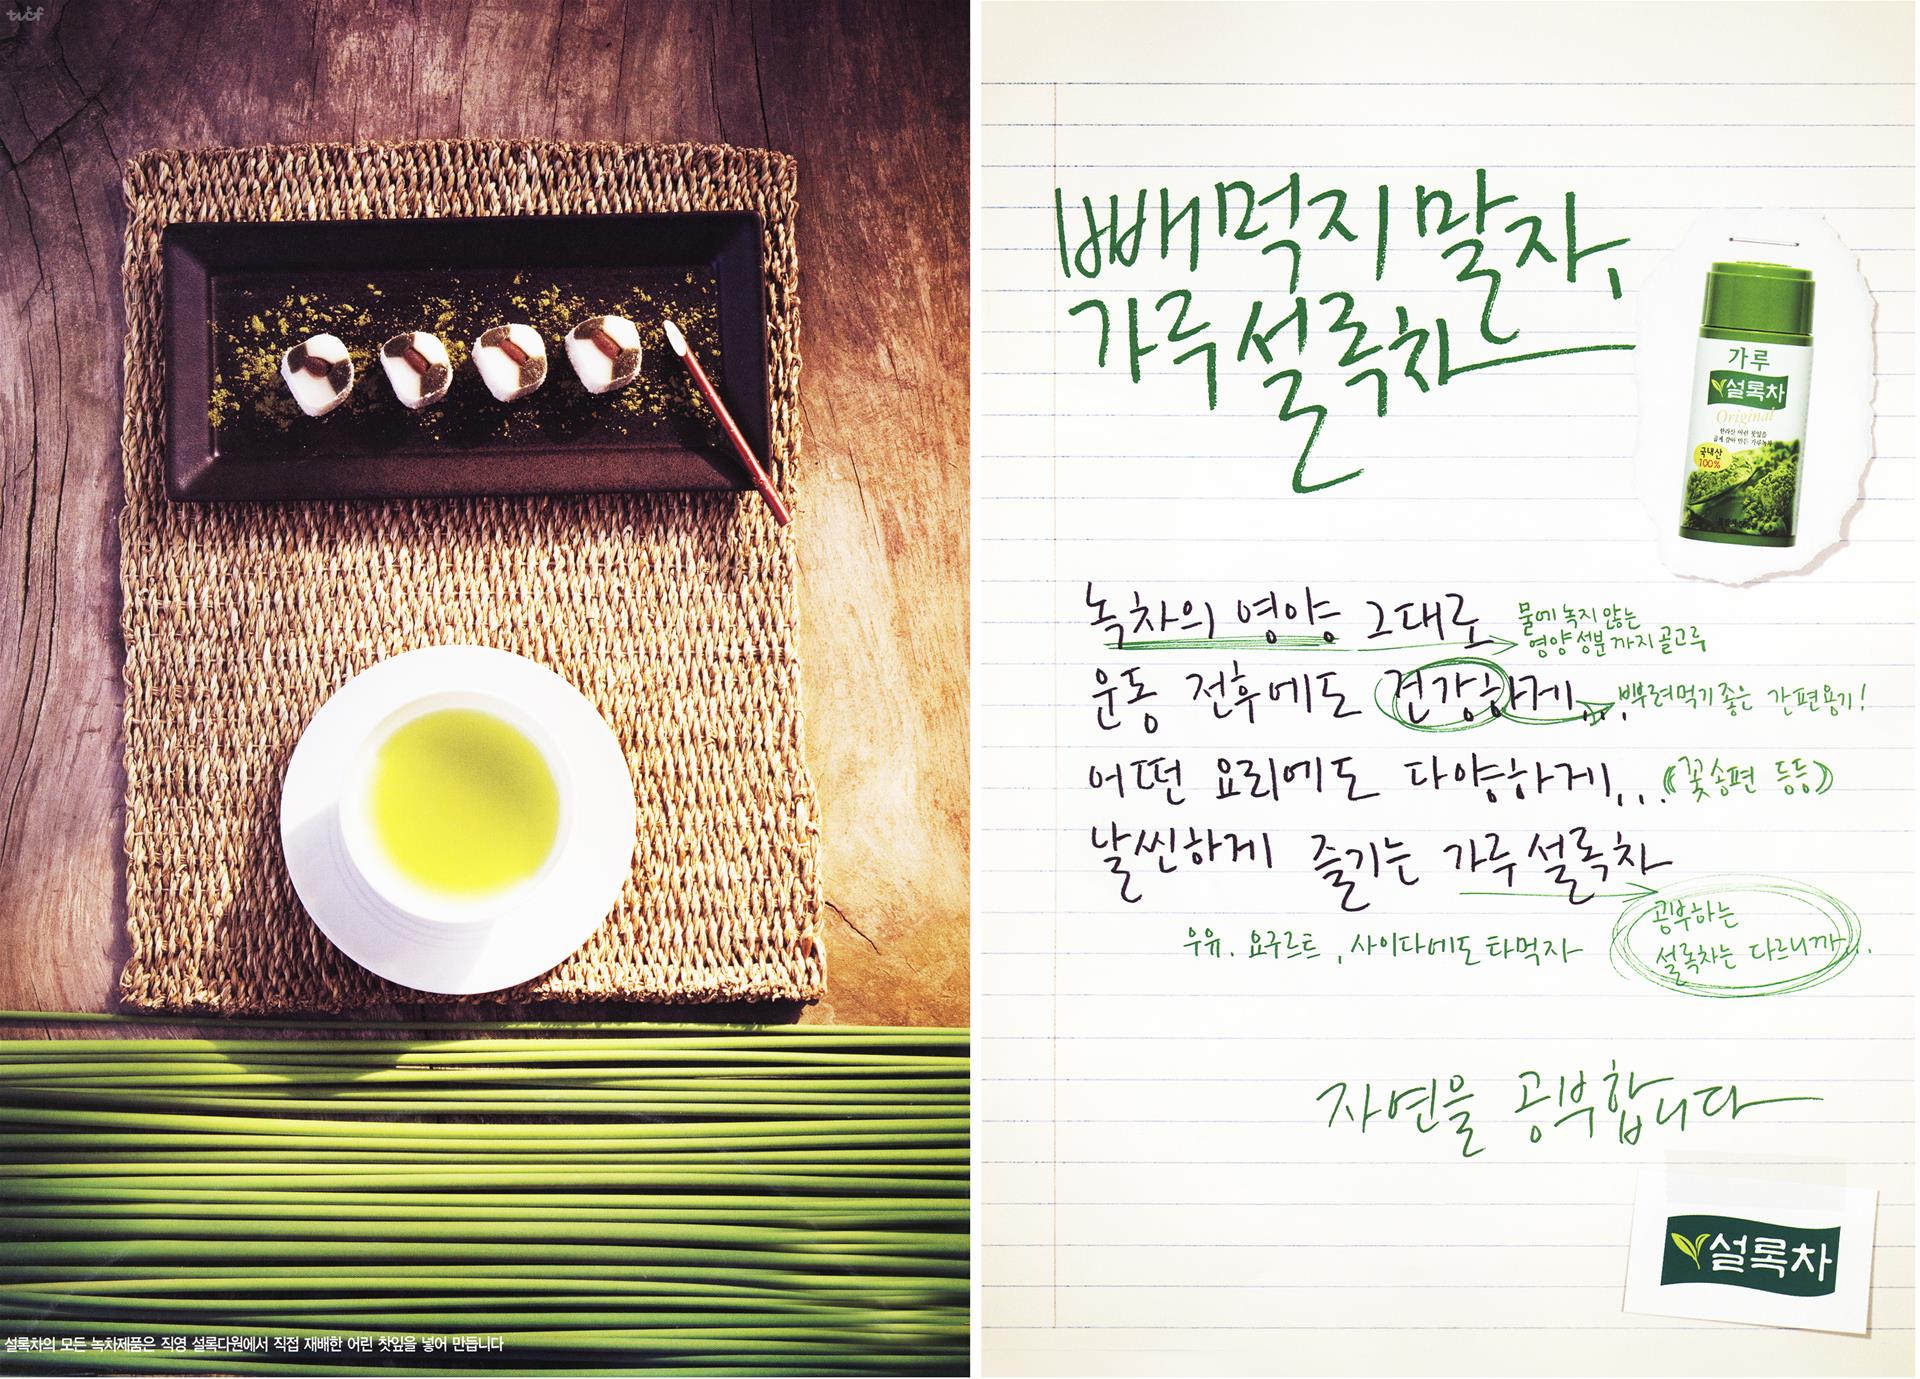 tvcf
설록차의 모든 녹차제품은 직영 설록다원에서 직접 재배한 어린 찻잎을 넣어 만듭니다
빼먹지 말자,
가루설록차
가루
설록차
Original
한라산 어린 찻잎을
곱게 갈아 만든 가루녹차
국내산
100%
녹차의 영양 그대로
물에 녹지 않는
영양성분까지 골고루
운동 전후에도 건강하게...
뿌려먹기 좋은 간편용기!
어떤 요리에도 다양하게...
(꽃송편 등등)
날씬하게 즐기는 가루설록차
우유, 요구르트, 사이다에도 타먹자
공부하는
설록차는 다르니까...
자연을 공부합니다
설록차